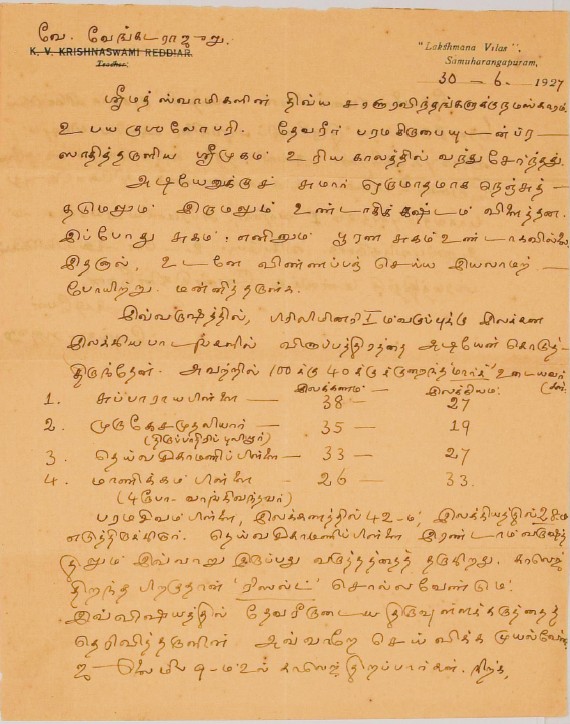 வே. வேங்கடராஜுலு.
K. V. KRISHNASWAMI REDDIAR.
Teacher.
"Lakshmana Vilas",
Samuharangapuram,
30 – 6 – 1927
ஸ்ரீமத் ஸ்வாமிகளின் திவ்ய சரணாரவிந்தங்களுக்கு நமஸ்காரம்.
உபய குசலோபரி. தேவரீர் பரமகிருபையுடன் ப்ர –
ஸாதித்தருளிய ஸ்ரீமுகம் உரிய காலத்தில் வந்து சேர்ந்தது.
அடியேனுக்குச் சுமார் ஒருமாதமாக நெஞ்சுத் –
தடுமனும் இருமலும் உண்டாகிக் கஷ்டம் விளைத்தன.
இப்போது சுகம்: எனினும் பூரண சுகம் உண்டாகவில்லை.
இதனால், உடனே விண்ணப்பஞ் செய்ய இயலாமற் –
போயிற்று. மன்னித்தருள்க.
இவ்வருஷத்தில், பிரிலிமினரி I ம் வகுப்புக்கு இலக்கண
இலக்கிய பாடங்களில் வினாப்பத்திரத்தை அடியேன் கொடுத் –
திருந்தேன். அவற்றில் 100க்கு 40க்குக்குறைந்த மார்க் உடையவர்
இலக்கணம் – இலக்கியம்
1. சுப்பாராயபிள்ளை – 38 – 27
2. முருகேசமுதலியார் – 35 – 19
(திருப்பாதிரிப்புலியூர்)
3. தெய்வசிகாமணிப்பிள்ளை – 33 – 27
4. மாணிக்கம் பிள்ளை – 26 – 33.
வாங்கிவந்தவர்)
பரமசிவம்பிள்ளை, இலக்கணத்தில் 42-ம், இலக்கியத்தில் 28ம்
எடுத்திருக்கிறார். தெய்வசிகாமணிப்பிள்ளை இரண்டாம் வருஷத்
தினும் இவ்வாறு இருப்பது வருத்தத்தைத் தருகிறது. காலெஜ்
திறந்த பிறகுதான் 'ரிஸல்ட்' சொல்லவேண்டும்.
இவ்விஷயத்தில் தேவரீருடைய திருவுள்ளக்கருத்தைத்
தெரிவித்தருளின் அவ்வாறே செய்விக்க முயல்வேன்.
ஜூலை மீ 9-ம் உல் காலெஜ் திறப்பார்கள். நிற்க,